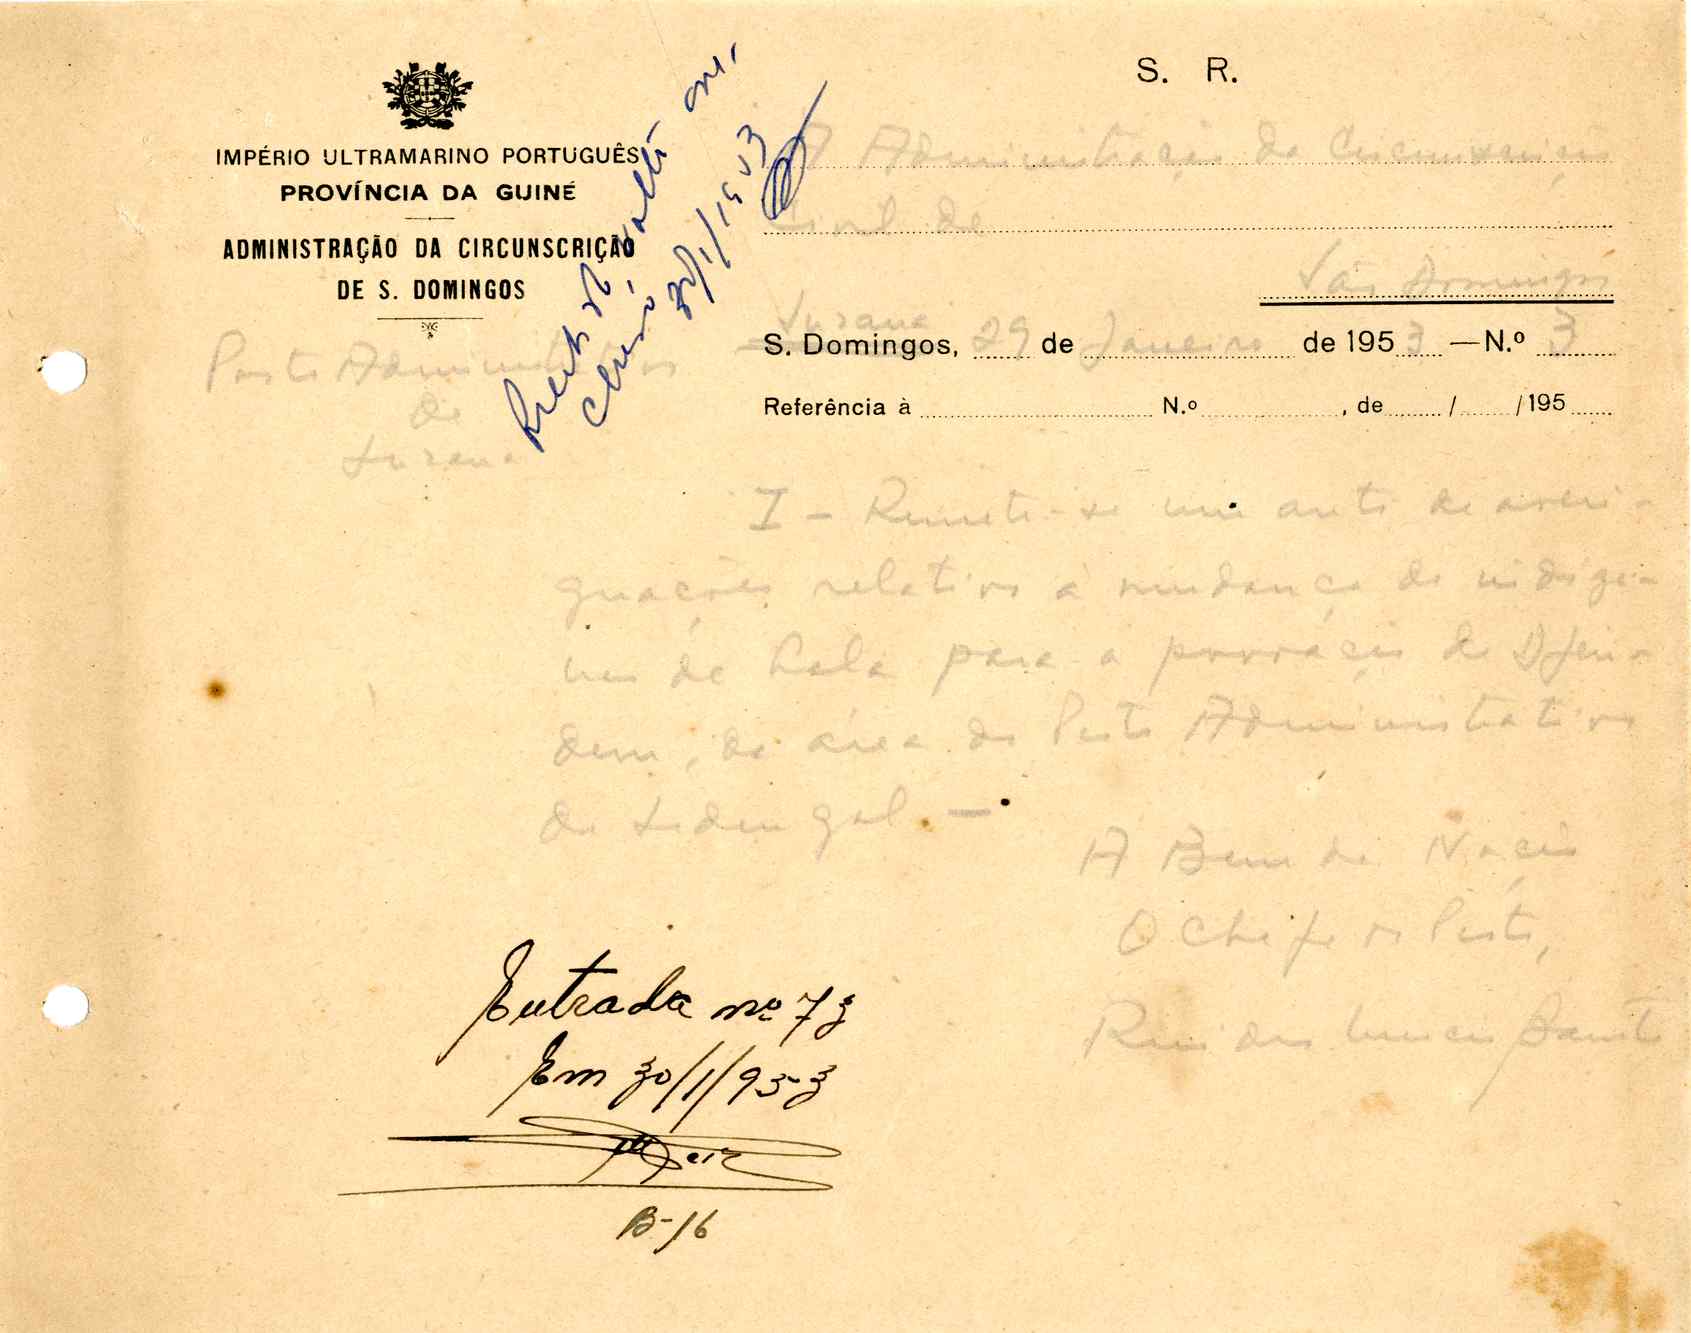 S. R.
IMPÉRIO ULTRAMARINO PORTUGUÊS
PROVÍNCIA DA GUINÉ
ADMINISTRAÇÃO DA CIRCUNSCRIÇÃO
DE S. DOMINGOS
Posto Administrativo
de
Susana
30/1/1953
À Administração da Circunscrição
Civil de
São Domingos
Susana
S. Domingos, 29 de Janeiro de 1953 — N.º 3
Referência à N.º , de / /195
I - Remete-se um auto de averi-
guações relativo à mudança de indíge-
nas de para a povoação de Djen-
dem, da área do Posto Administrativo
de Sedengal. —
A Bem da Nação
O Chefe do Posto,
Entrada nº 73
Em 30/1/953
B-16